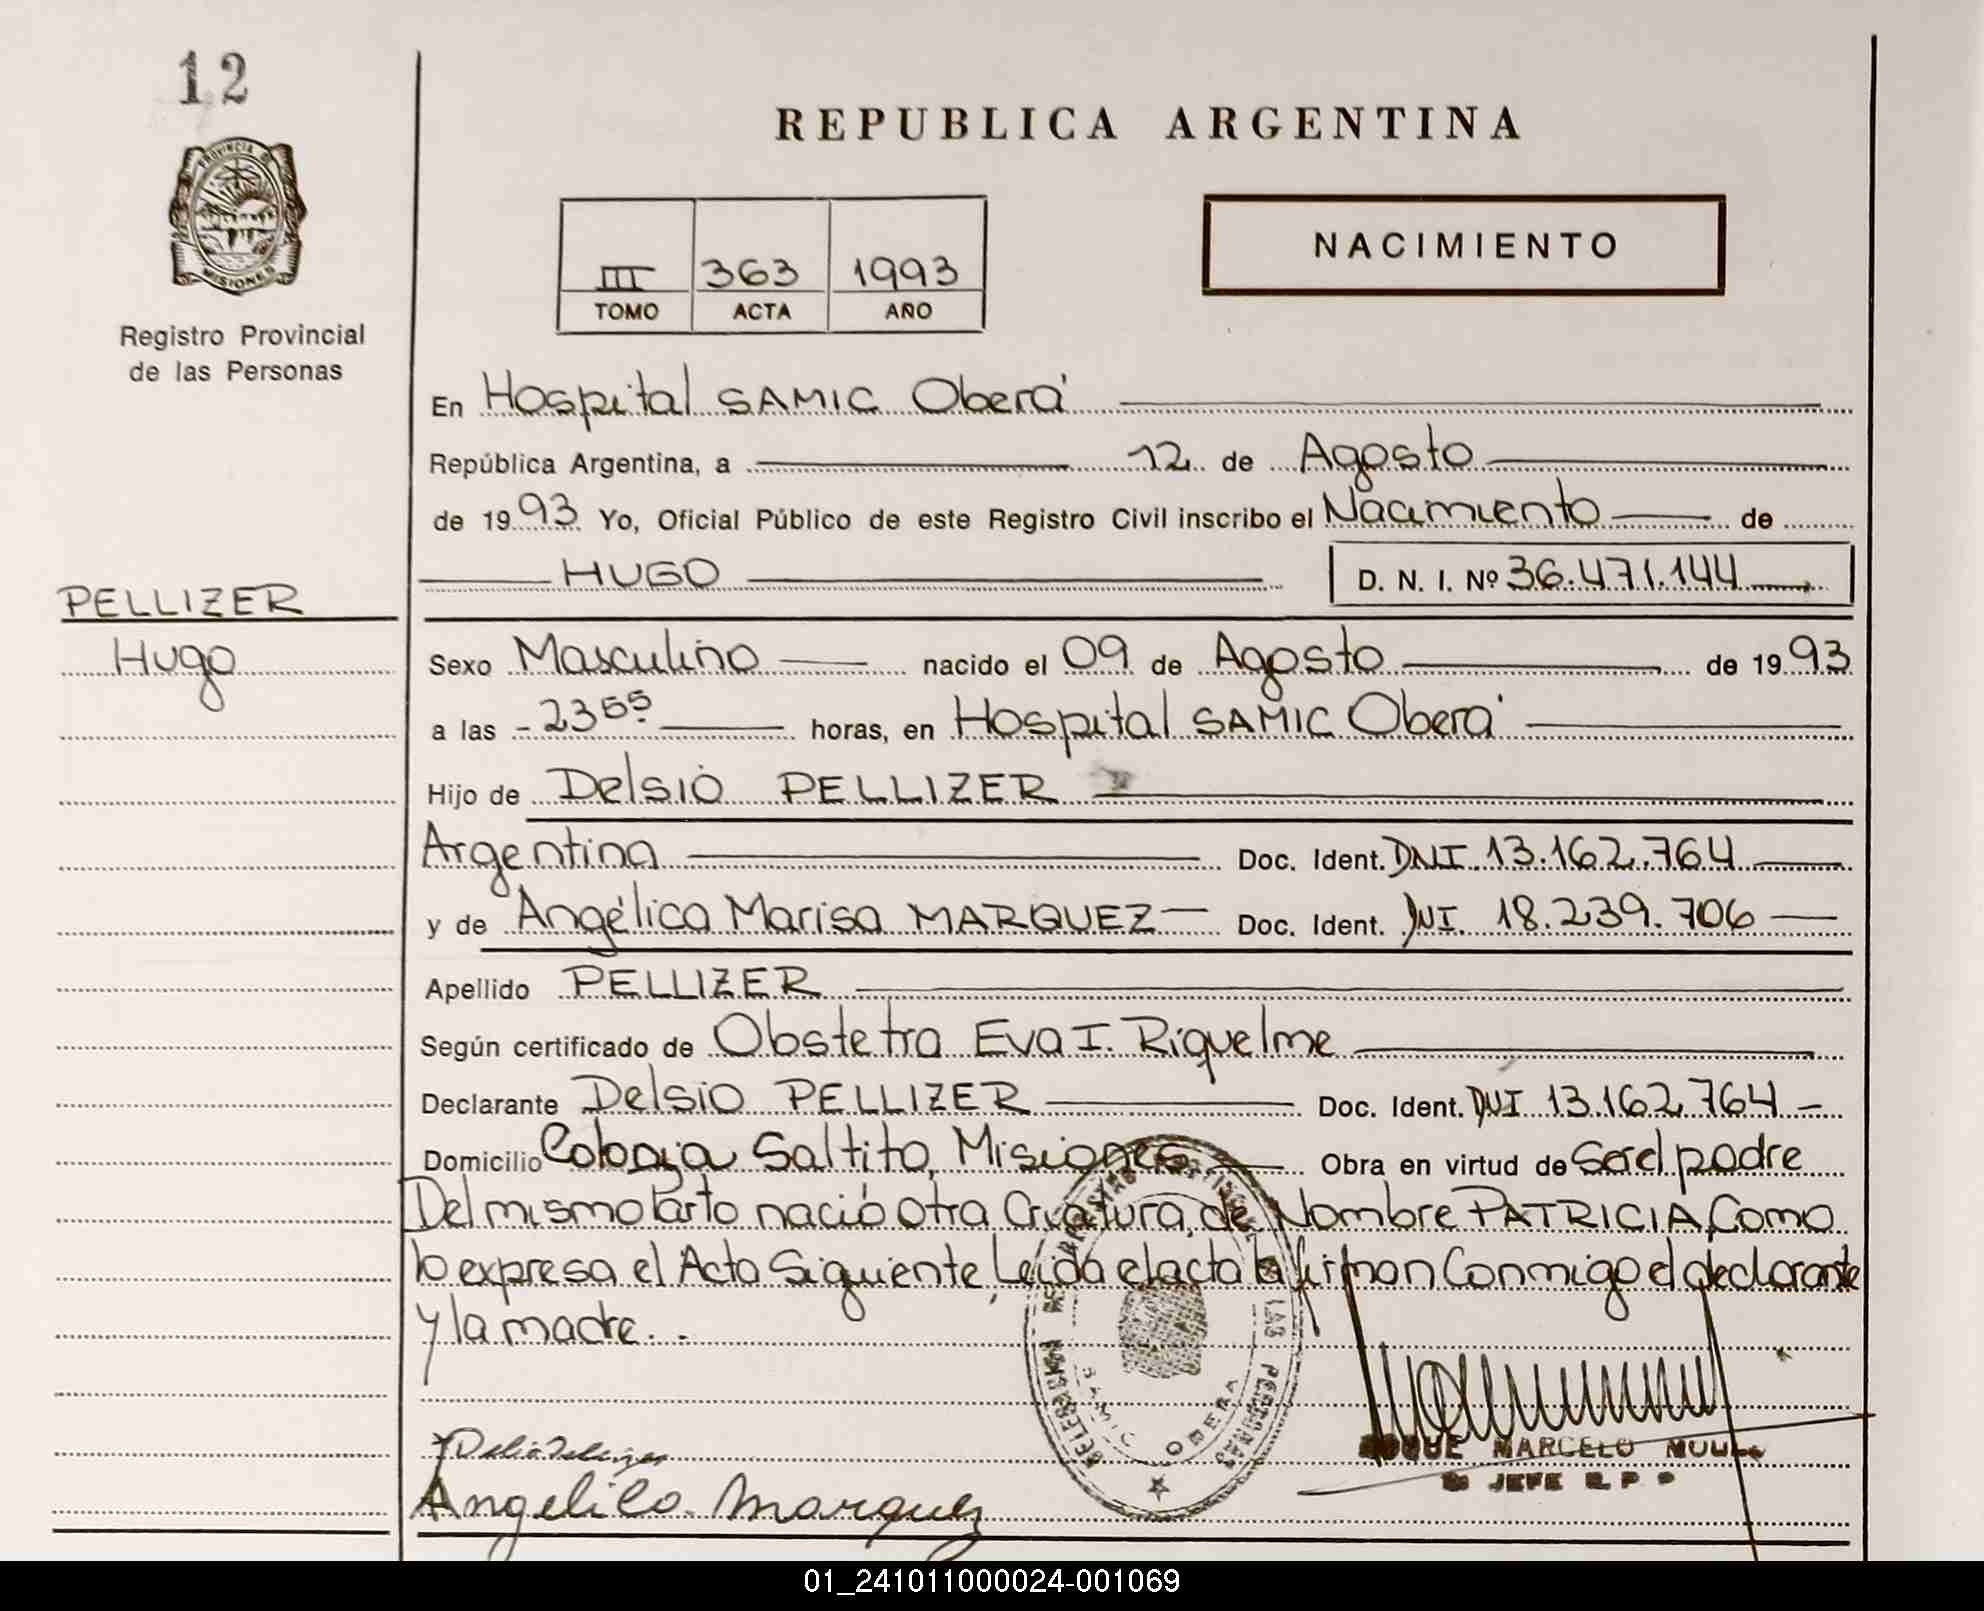 12
REPUBLICA ARGENTINA
PROVINCIA D
MISIONES
Registro Provincial
de las Personas
III 363 1993
TOMO ACTA AÑO
NACIMIENTO
En Hospital SAMIC Oberá
República Argentina, a 12 de Agosto
de 1993 Yo, Oficial Público de este Registro Civil inscribo el Nacimiento de
HUGO D. N. I. Nº 36.471.144
PELLIZER
Hugo
Sexo Masculino nacido el 09 de Agosto de 1993
a las - 23 55 horas, en Hospital SAMIC Oberá
Hijo de Delsio PELLIZER
Argentina Doc. Ident. DNI 13.162.764
y de Angélica Marisa MARQUEZ Doc. Ident. DNI. 18.239.706
Apellido PELLIZER
Según certificado de Obstetra Eva I. Riquelme
Declarante Delsio PELLIZER Doc. Ident. DNI 13.162.764
Domicilio Colonia Saltito, Misiones Obra en virtud de Ser el padre
Del mismo Parto nació otra Criatura, de Nombre PATRICIA, Como
lo expresa el Acta Siguiente, Leída el acta la firman Conmigo el declarante
y la madre.
LAS PERSONAS
SAMIC OBERA
MARCELO
JEFE R.P.P
Angelica Marquez
01_241011000024-001069